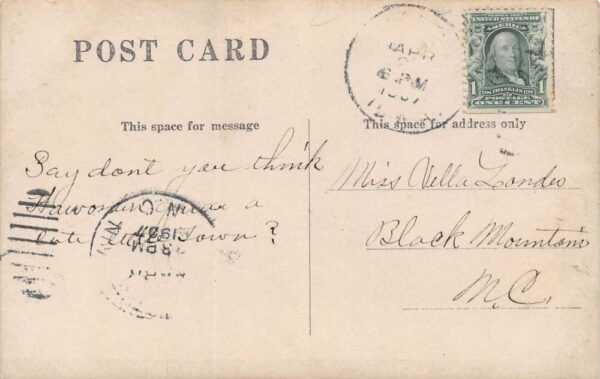 POST CARD
APR
6 PM
1907
UNITED STATES OF
AMERICA
1 1
FRANKLIN
POSTAGE
ONE CENT
This space for message
This space for address only
Say dont you think
is a
cute little town?
N C
1907
8 PM
Miss Vella Landes
Black Mountain
N.C.